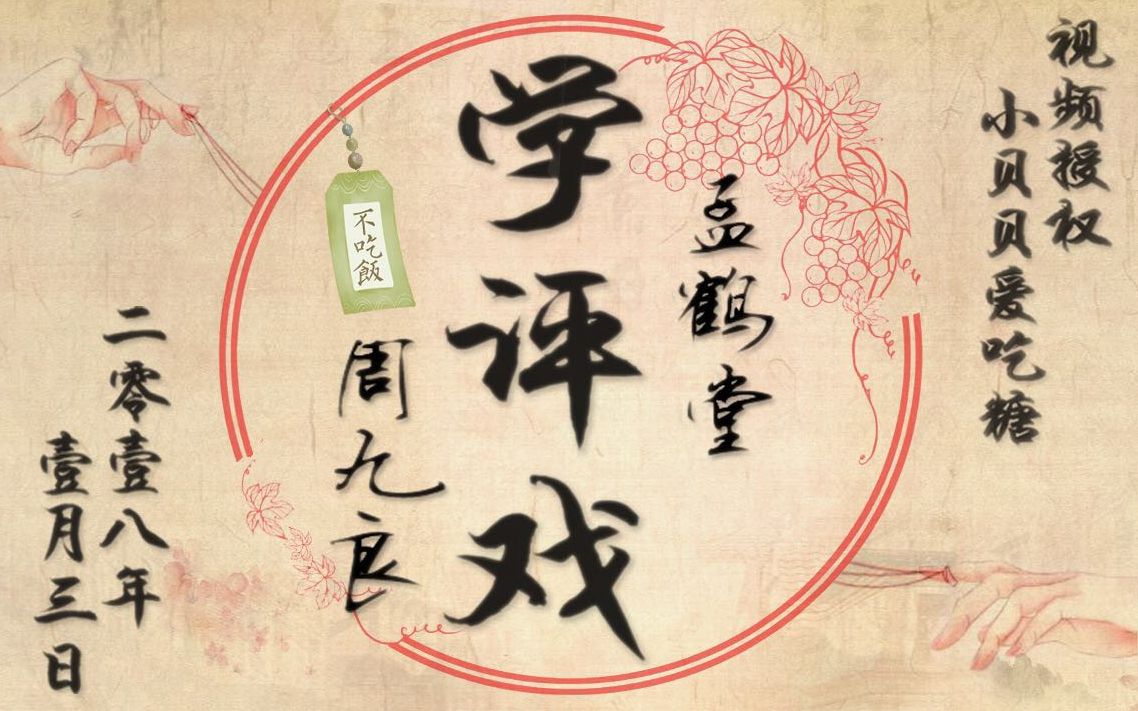 视频授权
小贝贝爱吃糖
孟鹤堂
学评戏
周九良
不吃飯
二零壹八年
壹月三日